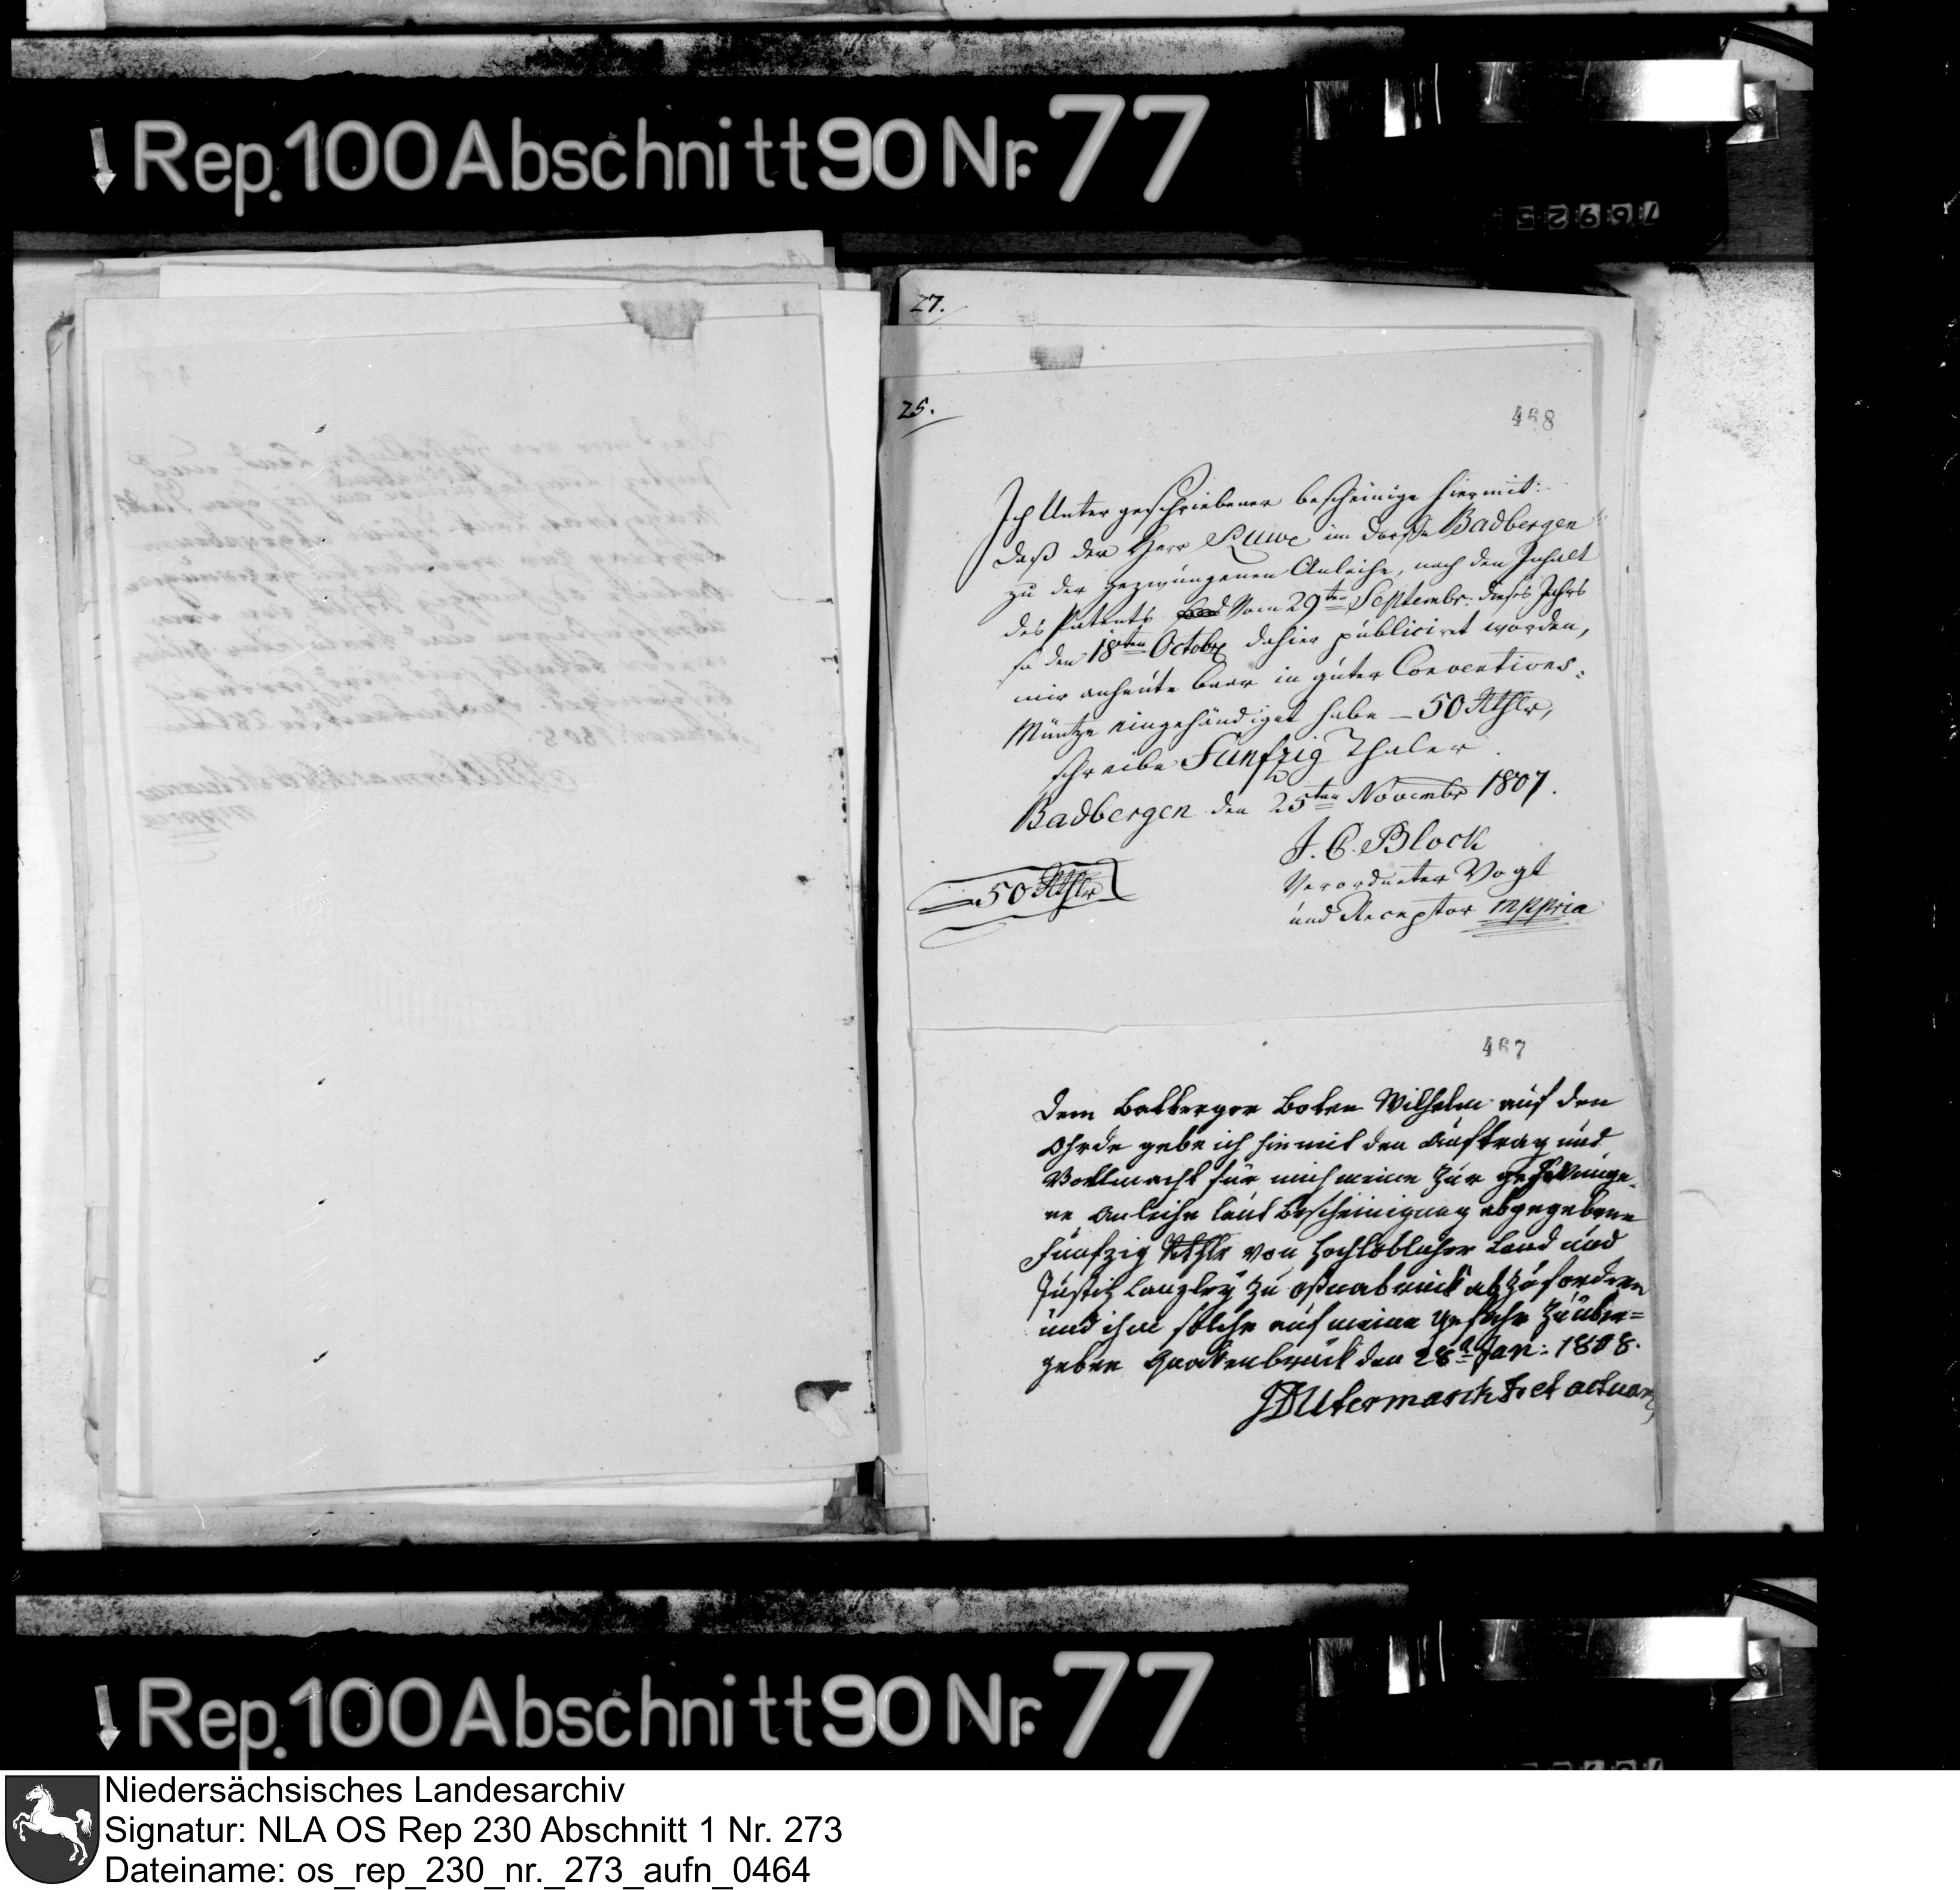 Rep. 100 Abschnitt 90 Nr. 77
76925
27.
25.
468
Ich Untergeschriebener bescheinige hiermit:
daß der Herr Ruwe im Dorffe Badbergen
zu der gezwungenen Anleihe, nach den Inhalt
des Patents vom 29ten Septembr. dieses Jahrs
so den 18ten Octobr dahier publiciret worden,
mir anheute baar in guter Conventions-
Müntze eingehändiget habe – 50 Rthlr,
schreibe Funfzig Thaler.
Badbergen den 25ten Novembr 1807.
J. C. Block
Verordneter Vogt
und Receptor mppria
50 Rthlr
467
Dem Batberger Boten Wilhelm auf den
Ohrde gebe ich hiemit den Auftrag und
Vollmacht für mich meine zur gezwunge-
ne Anleihe laut Bescheinigung abgegebene
Funfzig Rthlr von hochlöblicher Land und
Justitz Canzley zu Osnabrück abzufordern
und ihm solche auf meine Gefahr zu über=
geben Quakenbrück den 28t Jan: 1808.
JDUtermarck et actuar
Rep. 100 Abschnitt 90 Nr. 77
Niedersächsisches Landesarchiv
Signatur: NLA OS Rep 230 Abschnitt 1 Nr. 273
Dateiname: os_rep_230_nr._273_aufn_0464